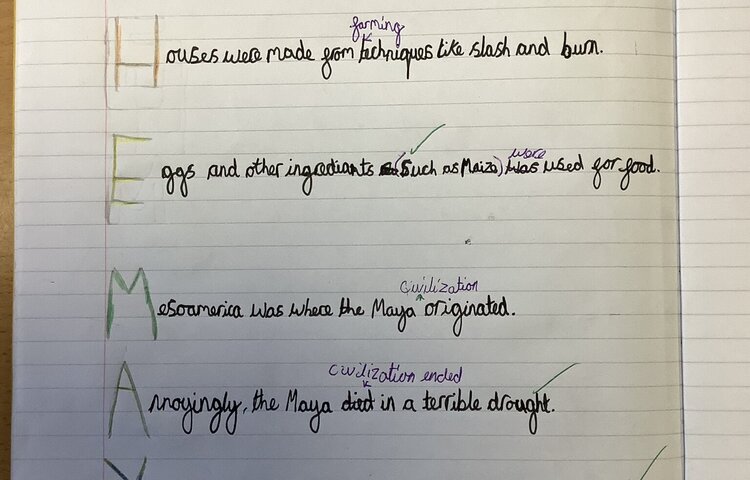 farming
Houses were made from techniques like slash and burn.
were
Eggs and other ingrediants (Such as Maize) was used for food.
civilization
Mesoamerica was where the Maya originated.
civilization ended
Annoyingly, the Maya died in a terrible drought.
Y